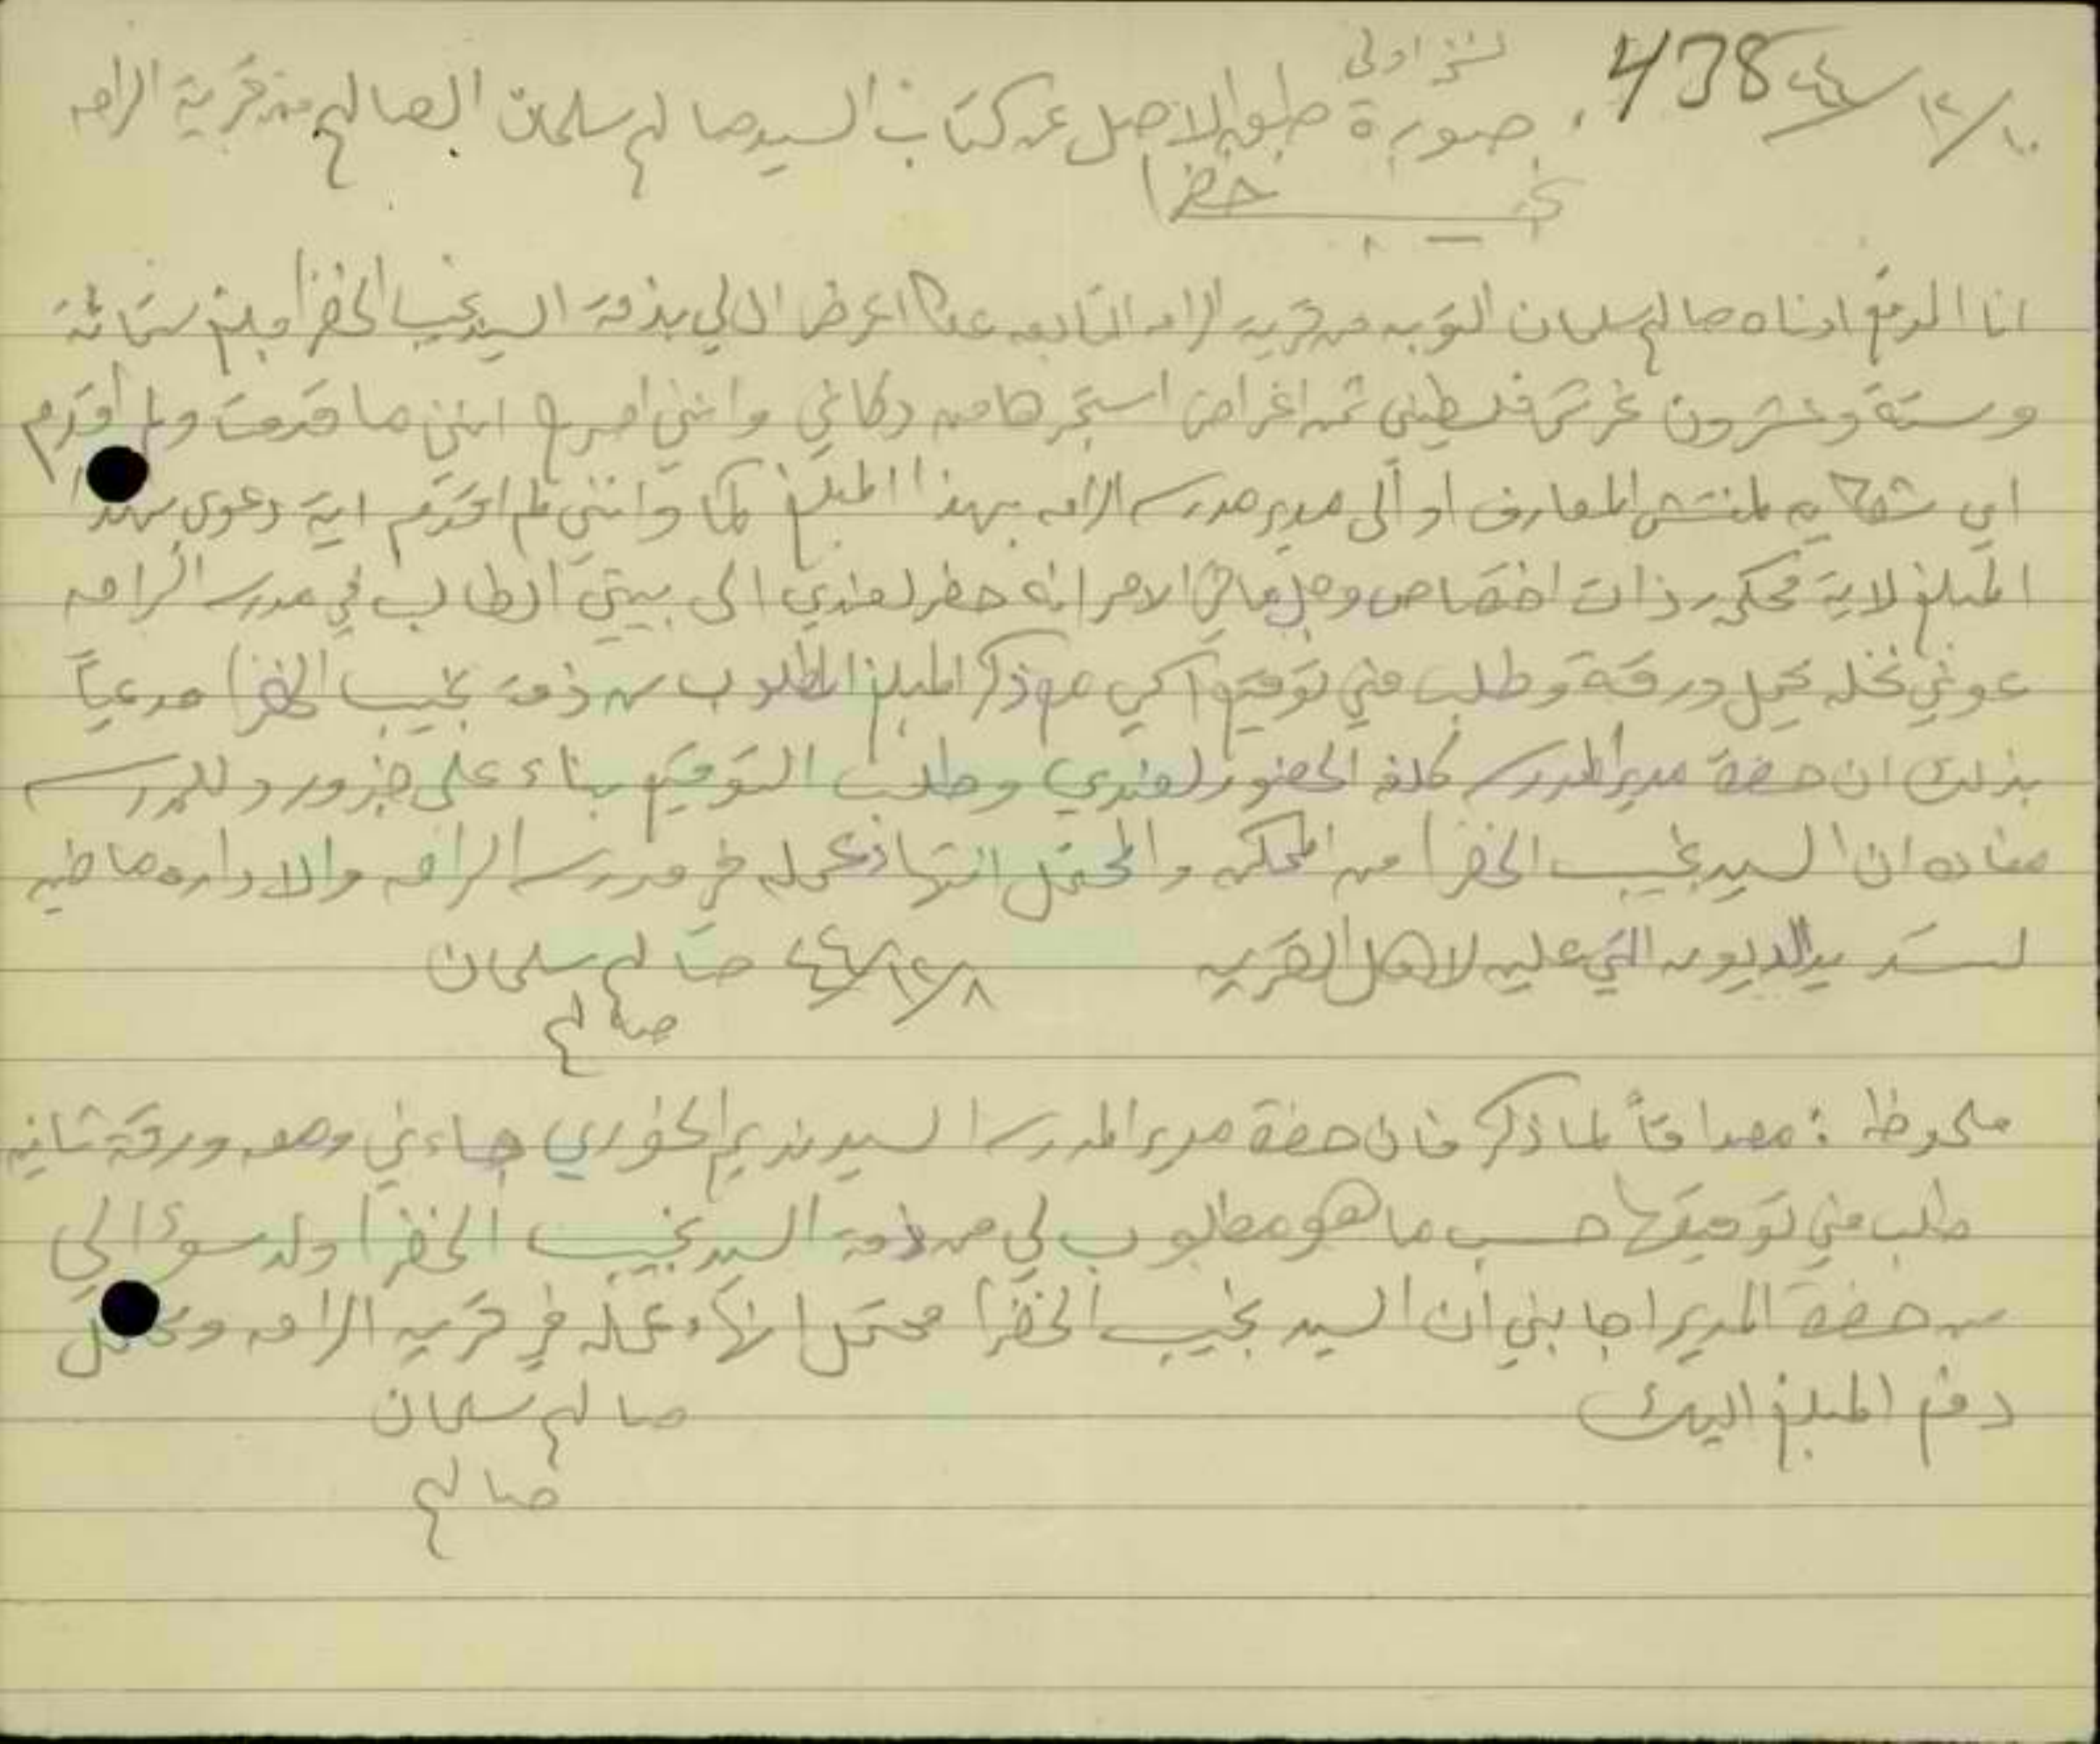 نسخة اولى
١٠/١٢/٤٤ 438
صورة طبق الاصل عن كتاب السيد صالح سلمان الصالح من قرية الرامه
نجيب خضرا
انا الموقع ادناه صالح سلمان من قرية الرامه التابعه عكا اعرض ان لي بذمة السيد نجيب الخضرا مبلغ ستمائة
وستة وعشرون غرش فلسطيني ثمن اغراض استجرها من دكاني وانني اصرح انني ما قدمت ولم أقدم
اي شكايه لمفتش المعارف او الى مدير مدرسه الرامه بهذا المبلغ كما وانني لم اقدم اية دعوى بهذا
المبلغ لاية محكمه ذات اختصاص وجل ما في الامر انه حضر لعندي الى بيتي الطالب في مدرسه الرامه
عوني نخله يحمل ورقة وطلب مني توقيع اسمي مع ذكر المبلغ المطلوب من ذمة نجيب الخضرا مدعياً
بذلك ان حضرة مدير المدرسه كلفه الحضور لعندي وطلب التوقيع بناء على ورود للمدرسه
مفاده ان السيد نجيب الخضرا من المحكمه والمحتمل انتهاء عمله في مدرسه الرامه والاداره
لتسديد الديون التي عليه لاهل القريه ٨/١٢/٤٤ صالح سلمان
صالح
ملحوظه : مصداقاً لما ذكر فان حضرة مدير المدرسه السيد نديم الخوري جاءني ومعه ورقة ثانيه
طلب مني توقيعها حسب ما هو مطلوب لي من ذمة السيد نجيب الخضرا ولدى سؤالي
من حضرة المدير اجابني ان السيد نجيب الخضرا محتمل انهاء عمله في قريه الرامه
دفع المبلغ اليك
صالح سلمان
صالح